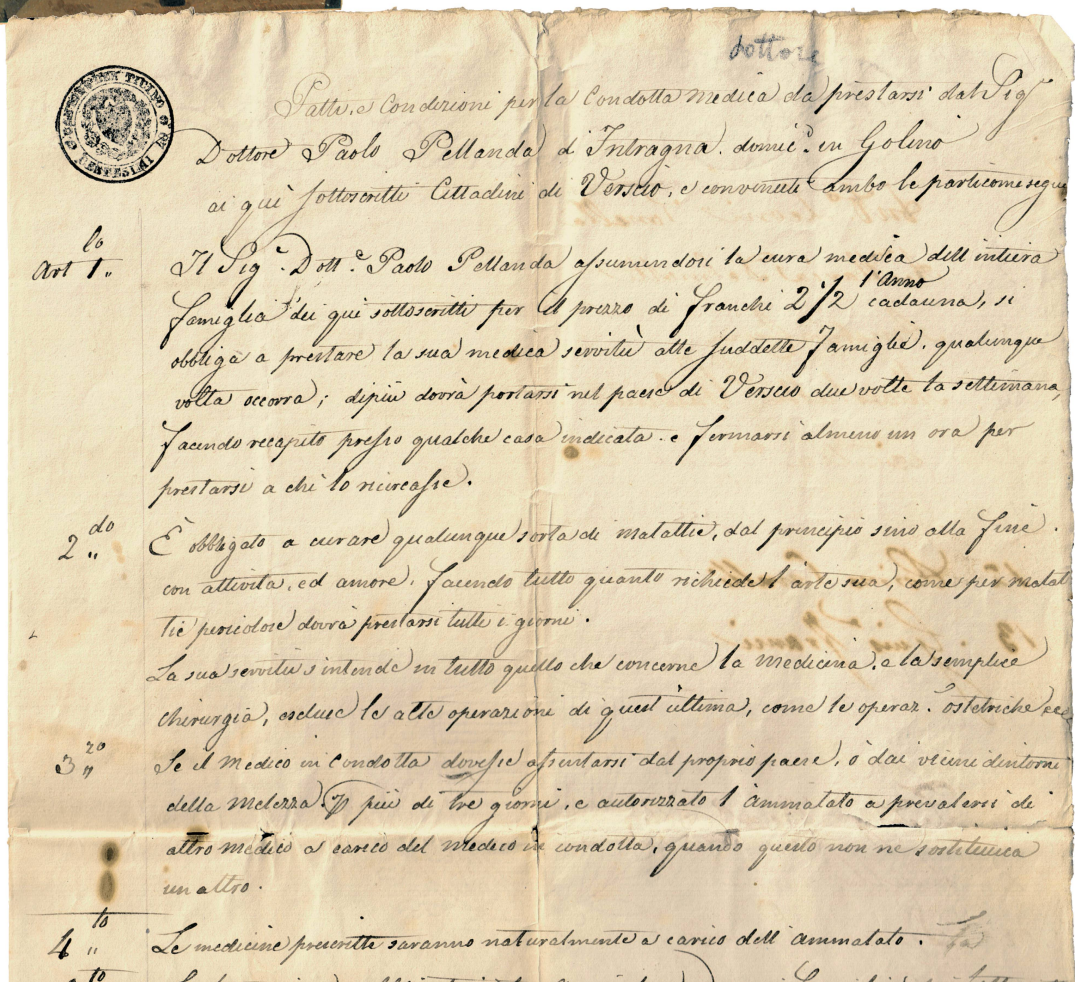 dottore
Patti, e Condizioni per la Condotta Medica da prestarsi dal Sig.r
Dottore Paolo Pellanda d'Intragna. domic.o in Golino
ai qui sottoscritti Cittadini di Verscio, e convenute ambo le parti come segue
Art 1mo „ Il Sig.e Dott.e Paolo Pellanda assumendosi la cura medica dell'intiera
famiglia dei qui sottoscritti per il prezzo di franchi 2 1/2 l'Anno cadauna, si
obbliga a prestare la sua medica servitù alle suddette famiglie. qualunque
volta occorra; dipiù dovrà portarsi nel paese di Verscio due volte la settimana,
facendo recapito presso qualche casa indicata. e fermarsi almeno un ora per
prestarsi a chi lo ricircasse.
2do „ È obbligato a curare qualunque sorta di malattie, dal principio sino alla fine.
con attività, ed amore. facendo tutto quanto richiede l'arte sua, come per malat
tie pericolose dovrà prestarsi tutti i giorni.
La sua servitù s'intende in tutto quello che concerne la medicina, e la semplice
chirurgia, escluse le alte operazioni di quest'ultima, come le operaz. ostetriche ecc
3zo „ Se il Medico in Condotta dovesse assentarsi dal proprio paese, o dai vicini dintorni
della Melezza più di tre giorni, e autorizzato l'ammalato a prevalersi di
altro medico a carico del medico in condotta, quando questo non ne sostituisca
un altro.
4to „ Le medicine prescritte saranno naturalmente a carico dell'ammalato. La